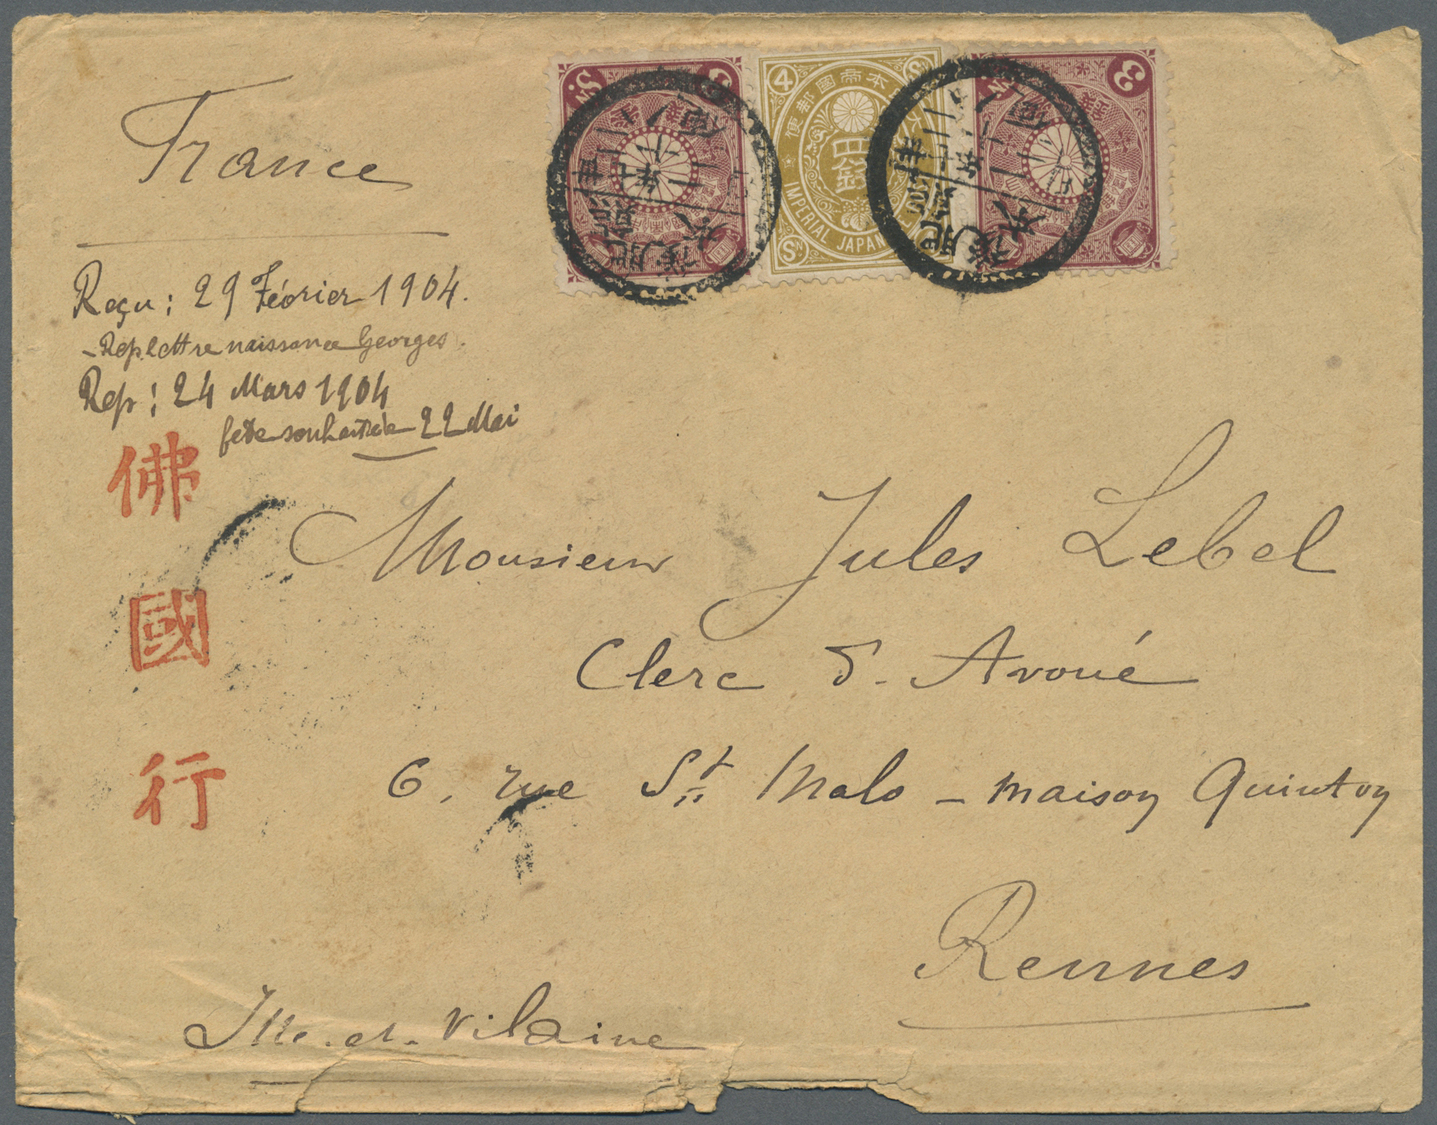 France
Reçu : 29 Février 1904.
- Rep lettre naissance Georges.
Rep : 24 Mars 1904
fête souhaitée 22 Mai
佛國行
Monsieur Jules Lebel
Clerc d. Avoué
6, rue St. Malo - maison Quinton
Rennes
Ille-et-Vilaine
3
Sn
4
Sn
大日本帝國郵便
四錢
IMPERIAL JAPAN
3
Sn